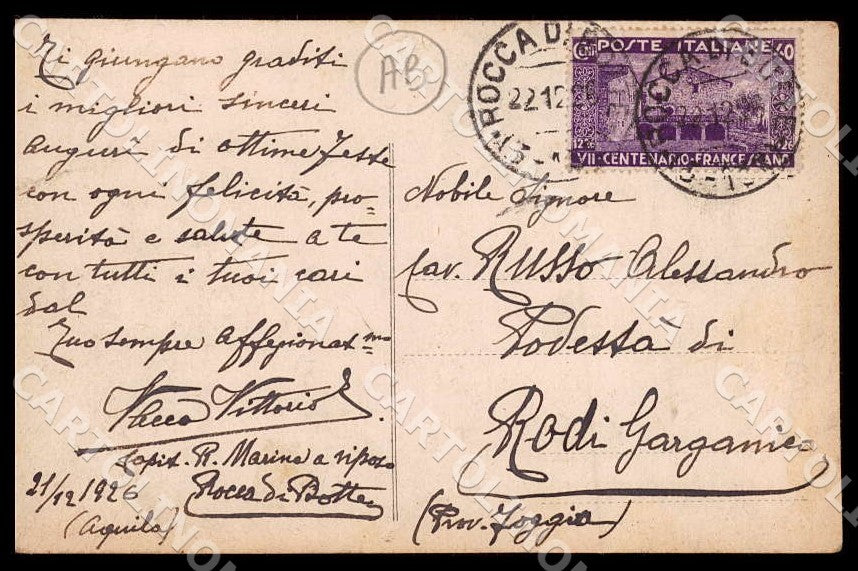 Ti giungano graditi
i migliori sinceri
auguri di ottime feste
con ogni felicità, pro-
sperità e salute a te
con tutti i tuoi cari
dal
Tuo sempre affezionatmo
Vacca Vittorio
Capit. R. Marina a riposo
Rocca di Botte
21/12 1926
(Aquila)
ABc
ROCCA DI
22.12.26
CENT POSTE ITALIANE 40
1226 1926
VII-CENTENARIO-FRANCESCANO
ROCCA DI
22.12.26
Nobile Signore
Cav. Russo Alessandro
Podestà di
Rodi Garganico
(Prov. Foggia)
CARTOLINOMANIA